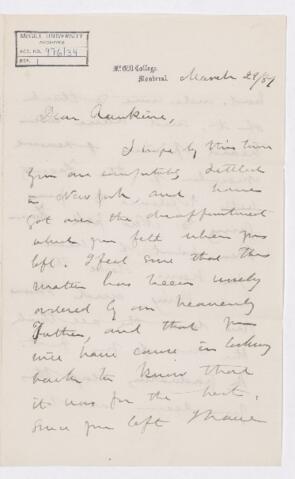 McGILL UNIVERSITY
ARCHIVES
ACC. NO. 976/34
REF. 1
McGill College,
Montreal.
March 29/87
Dear Rankine,
I hope by this time
you are comfortably settled
in New York, and have
got over the disappointment
which you felt when you
left. I feel sure that this
matter has been wisely
ordered by our heavenly
Father, and that you
will have cause in looking
back to know that
it was for the best.
Since you left I have